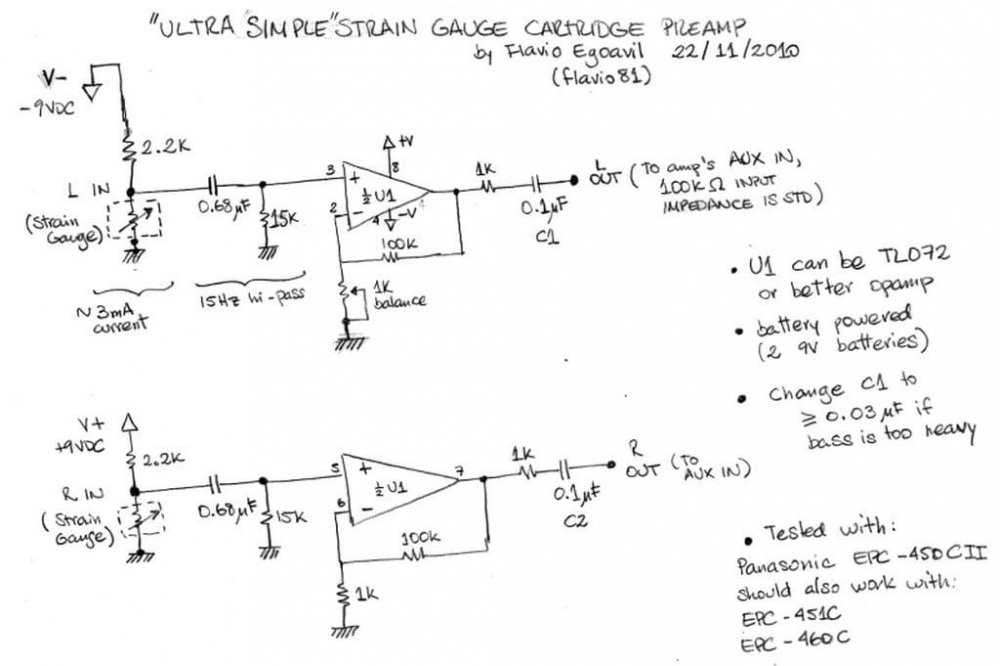 "ULTRA SIMPLE" STRAIN GAUGE CARTRIDGE PREAMP
by Flavio Egoavil 22/11/2010
(flavio81)
V-
-9VDC
2.2K
L IN
(Strain
Gauge)
0.68µF
15K
~3mA
current
15Hz hi-pass
3
+
2
-
½U1
+V
8
4
-V
100K
1K
balance
1K
0.1µF
C1
L
OUT (To amp's AUX IN,
100K Ω INPUT
IMPEDANCE IS STD)
• U1 can be TL072
or better opamp
• battery powered
(2 9V batteries)
• Change C1 to
≥ 0.03µF if
bass is too heavy
V+
+9VDC
2.2K
R IN
(Strain
Gauge)
0.68µF
15K
5
+
6
-
½U1
7
100K
1K
1K
0.1µF
C2
R
OUT (TO
AUX IN)
• Tested with:
Panasonic EPC-450CII
should also work with:
EPC-451C
EPC-460C